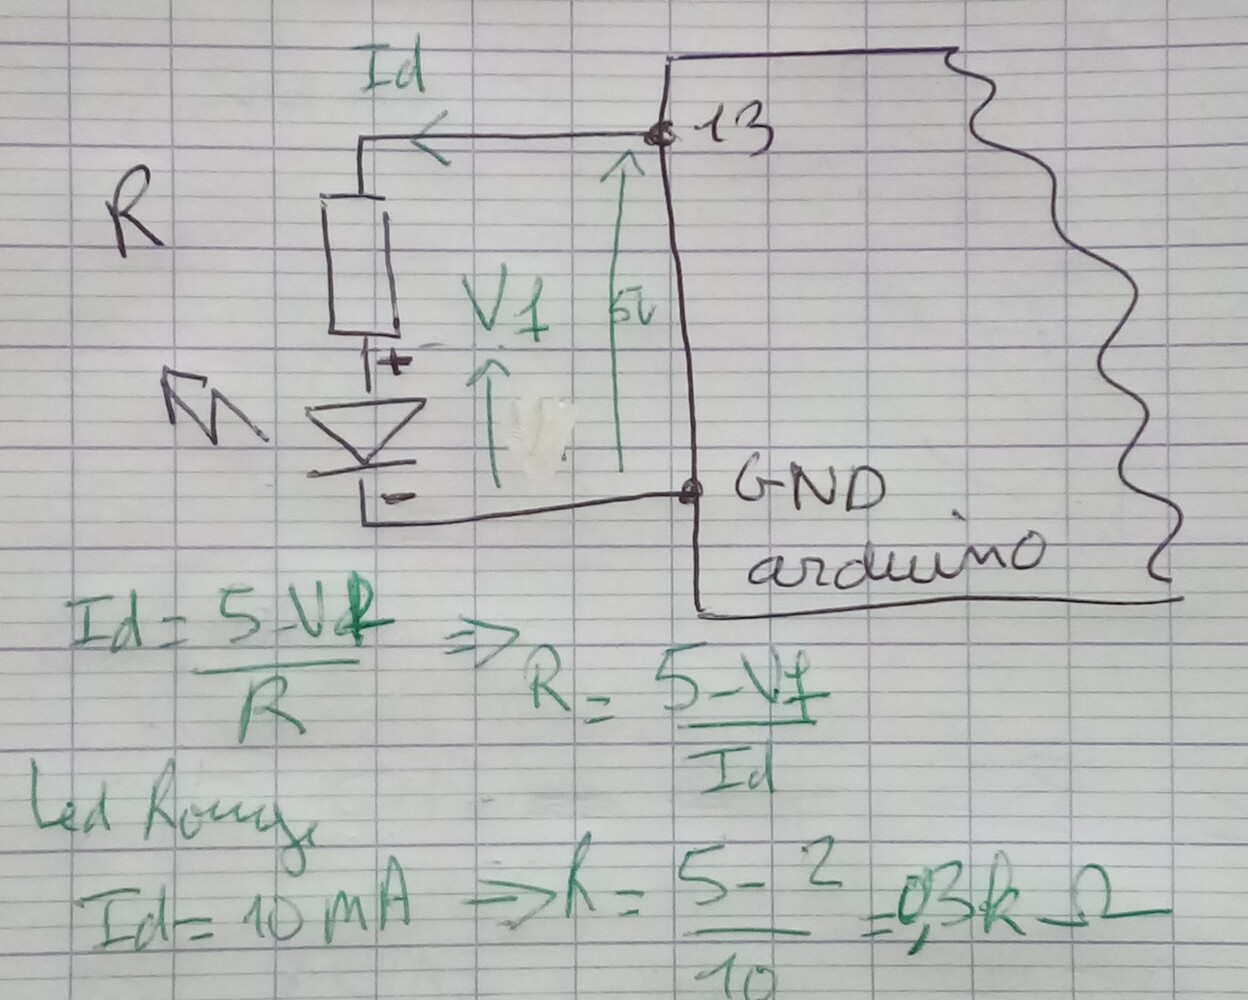 Id
13
R
Vf
5V
+
-
GND
arduino
Id = 5-Vf / R => R = 5-Vf / Id
Led Rouge
Id = 10 mA => R = 5-2 / 10 = 0,3 k Ω